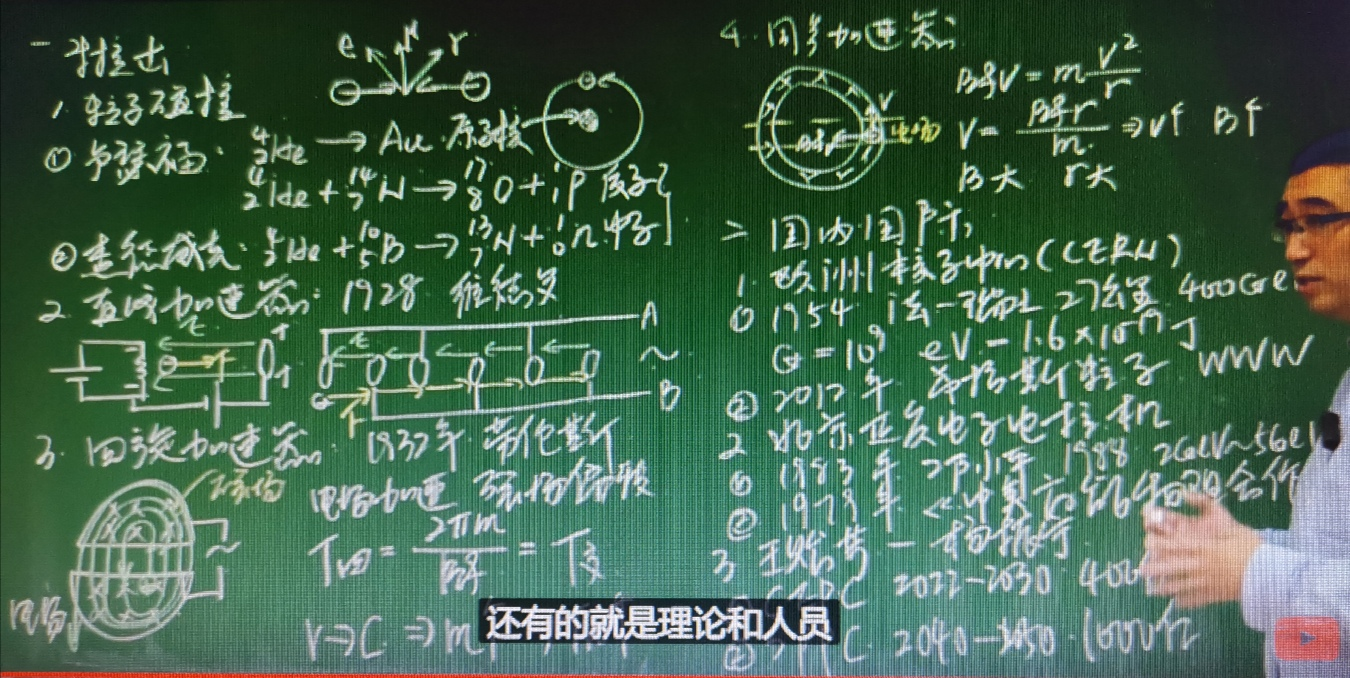 一 对撞击
1. 粒子碰撞
① 卢瑟福: ⁴₂He → Au 原子核
⁴₂He + ¹⁴₇N → ¹⁷₈O + ¹₁P 质子
② 查德威克: ⁴₂He + ¹⁰₅B → ¹³₇N + ¹₀n 中子
2. 直线加速器: 1928 维德罗
e M r
E F + A ~ B F
3. 回旋加速器: 1932年 劳伦斯
磁场 电场 ~
电场加速 磁场偏转
T回 = 2πm/Bq = T交
V→C ⇒ m
4. 同步加速器
V 电场
BqV = m v²/r
V = Bqr/m ⇒ V↑ B↑
B大 r大
二 国内国际
1. 欧洲核子中心 (CERN)
① 1954 法-瑞士 27公里 400Ge
G = 10⁹ eV = 1.6×10⁻¹⁹J
② 2012年 希格斯粒子 WWW
2. 北京正负电子对撞机
① 1983年 邓小平 1988 2GeV~5GeV
② 1979年 <中美高能物理合作
3 王贻芳 - 杨振宁
① CEPC 2022-2030 400
② SPPC 2040-2050 1000亿
还有的就是理论和人员